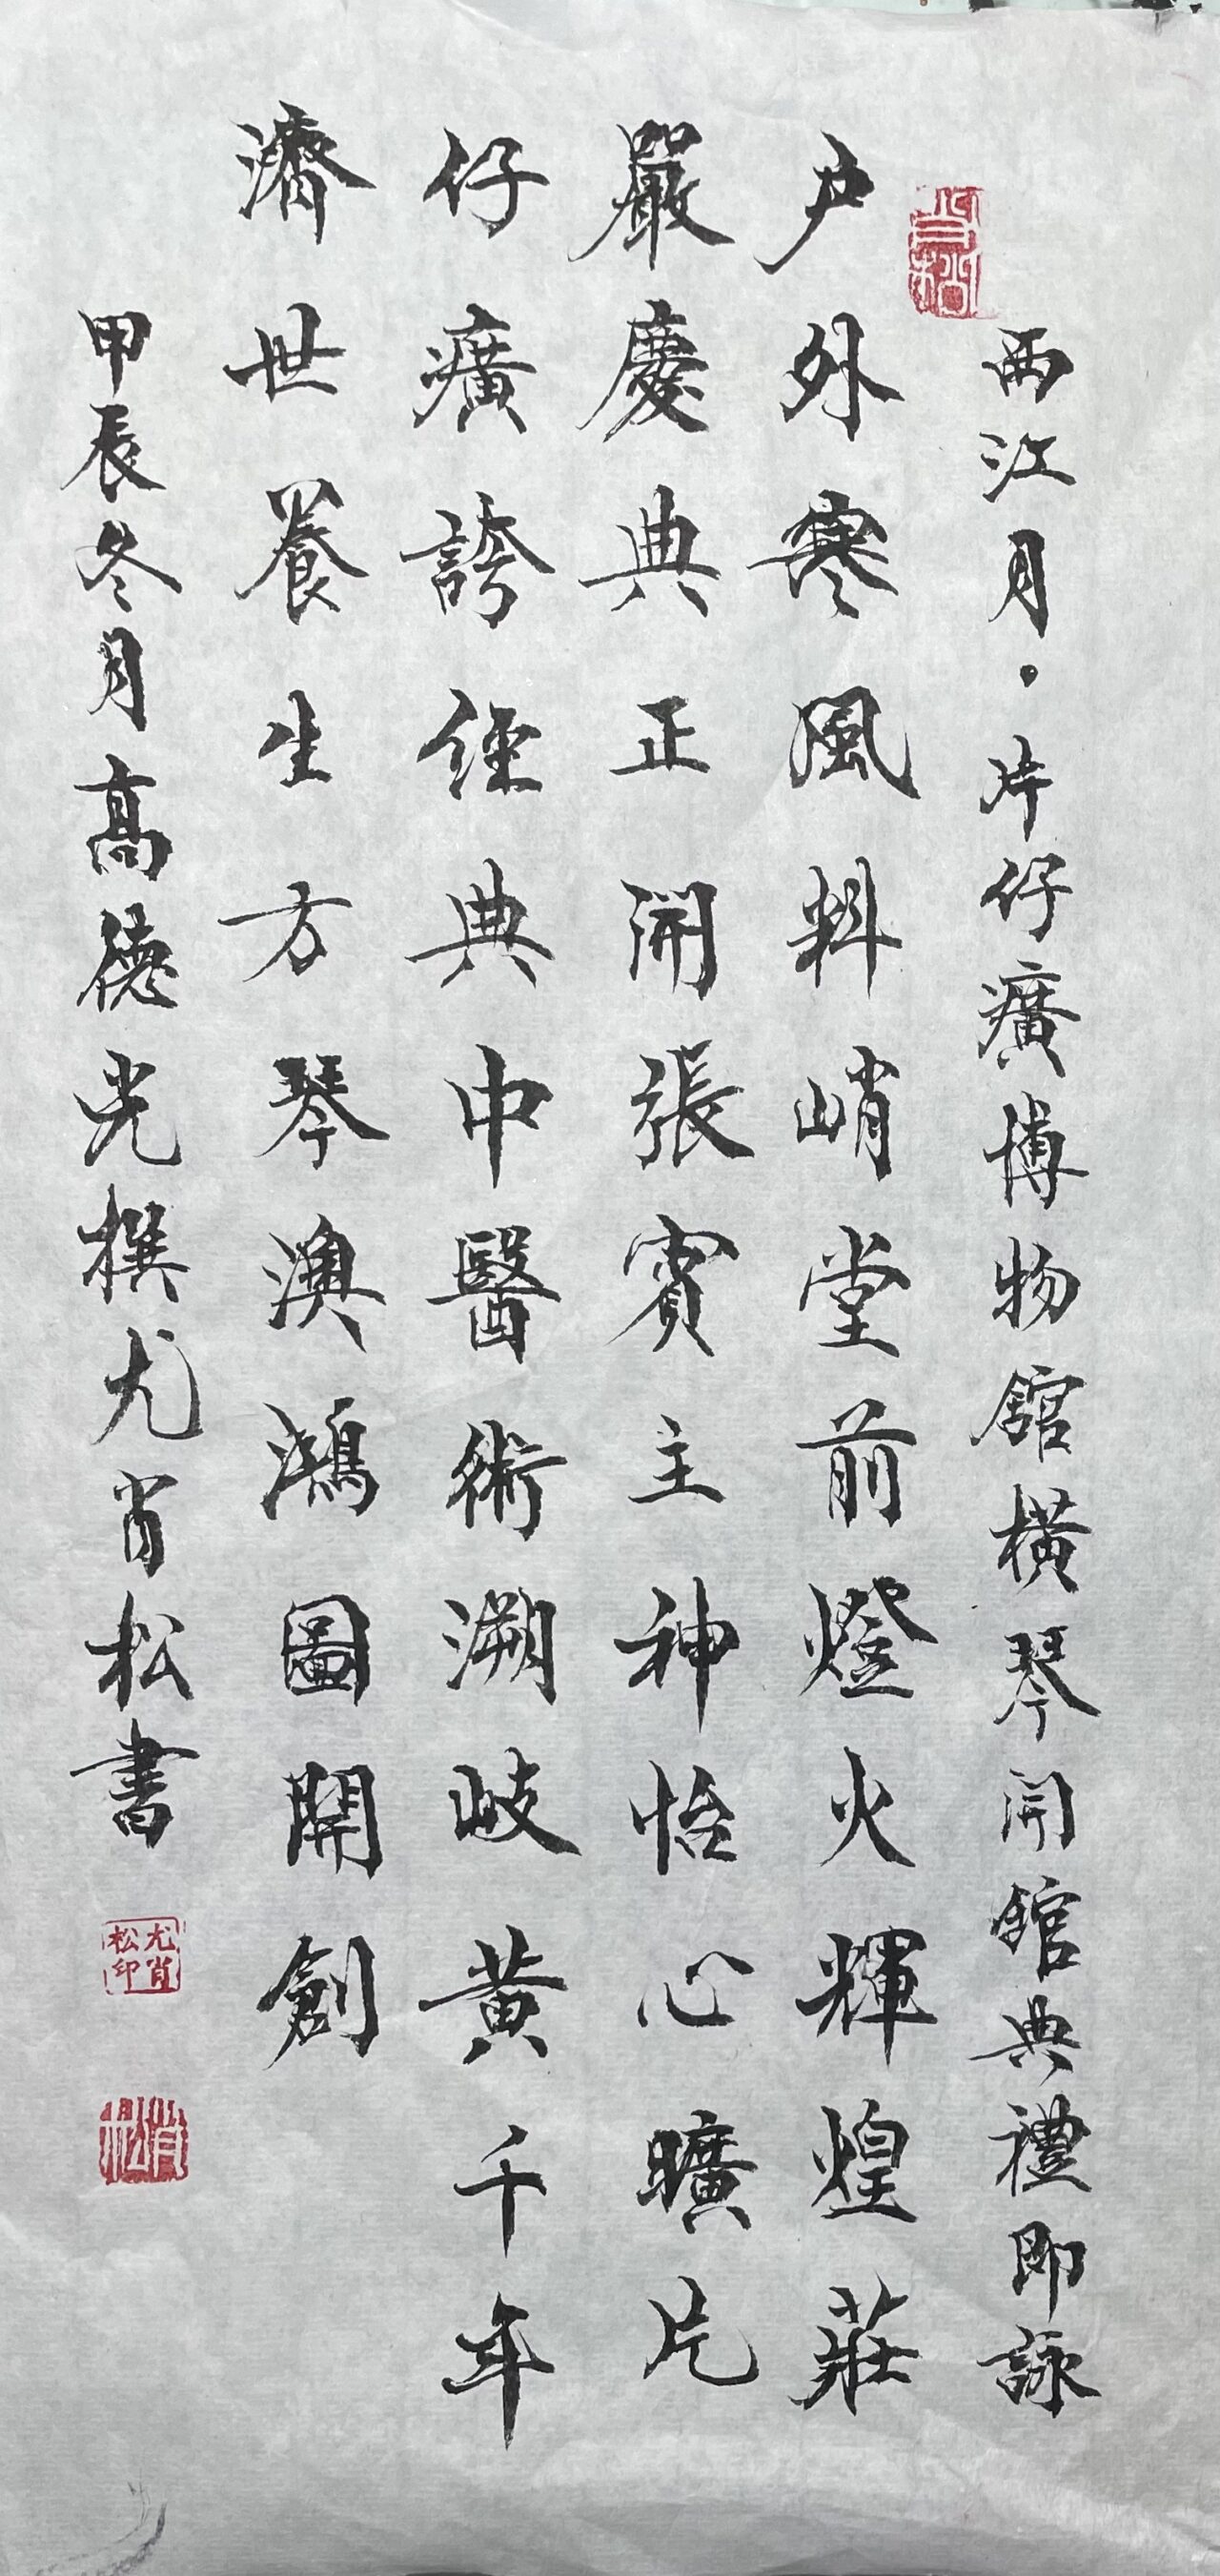 西江月·片仔癀博物館橫琴開館典禮即詠
肖松
户外寒風料峭堂前燈火輝煌莊
嚴慶典正開張賓主神怡心曠片
仔癀誇經典中醫術溯岐黄千年
濟世養生方琴澳鴻圖開創
甲辰冬月高德光撰尤肖松書
尤肖松印
肖松